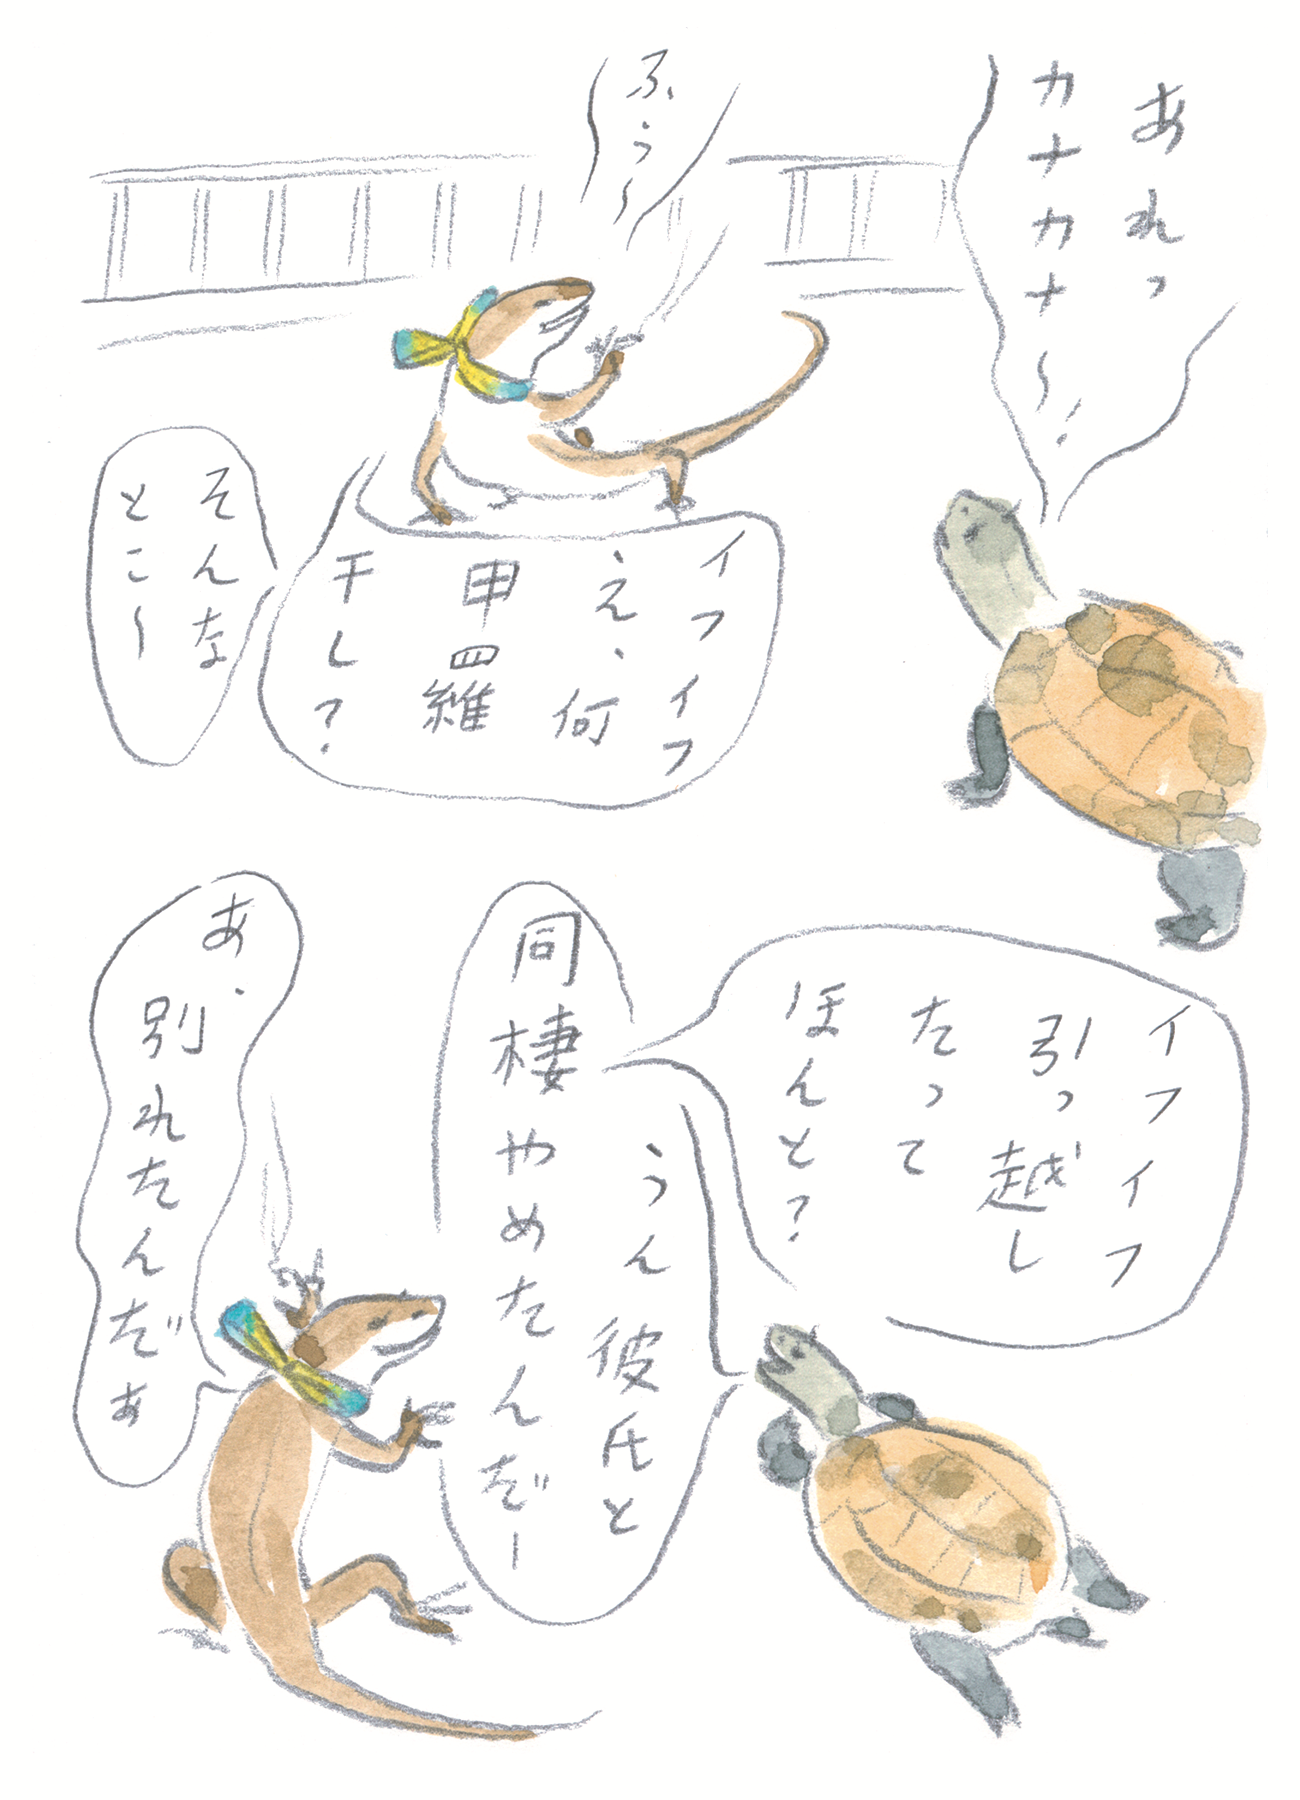 あれっ
カナカナ〜!
ふぅ〜
イフイフ
え、何
甲羅
干し?
そんな
とこ〜
イフイフ
引っ越し
たって
ほんと?
うん彼氏と
同棲やめたんだー
あ、
別れたんだぁ